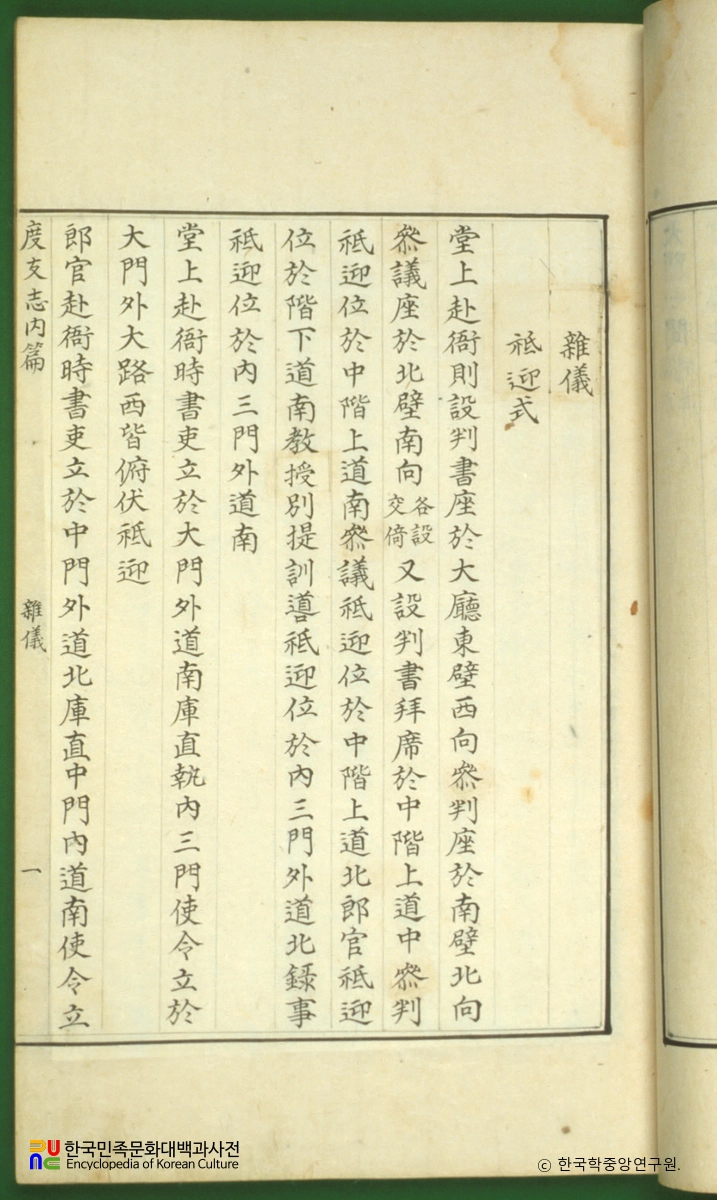 雜儀
祗迎式
堂上赴衙則設判書座於大廳東壁西向叅判座於南壁北向
叅議座於北壁南向各設交倚又設判書拜席於中階上道中叅判
祗迎位於中階上道南叅議祗迎位於中階上道北郎官祗迎
位於階下道南教授別提訓導祗迎位於內三門外道北錄事
祗迎位於內三門外道南
堂上赴衙時書吏立於大門外道南庫直執內三門使令立於
大門外大路西皆俯伏祗迎
郎官赴衙時書吏立於中門外道北庫直中門內道南使令立
度支志內篇 雜儀 一
한국민족문화대백과사전
Encyclopedia of Korean Culture
ⓒ 한국학중앙연구원.